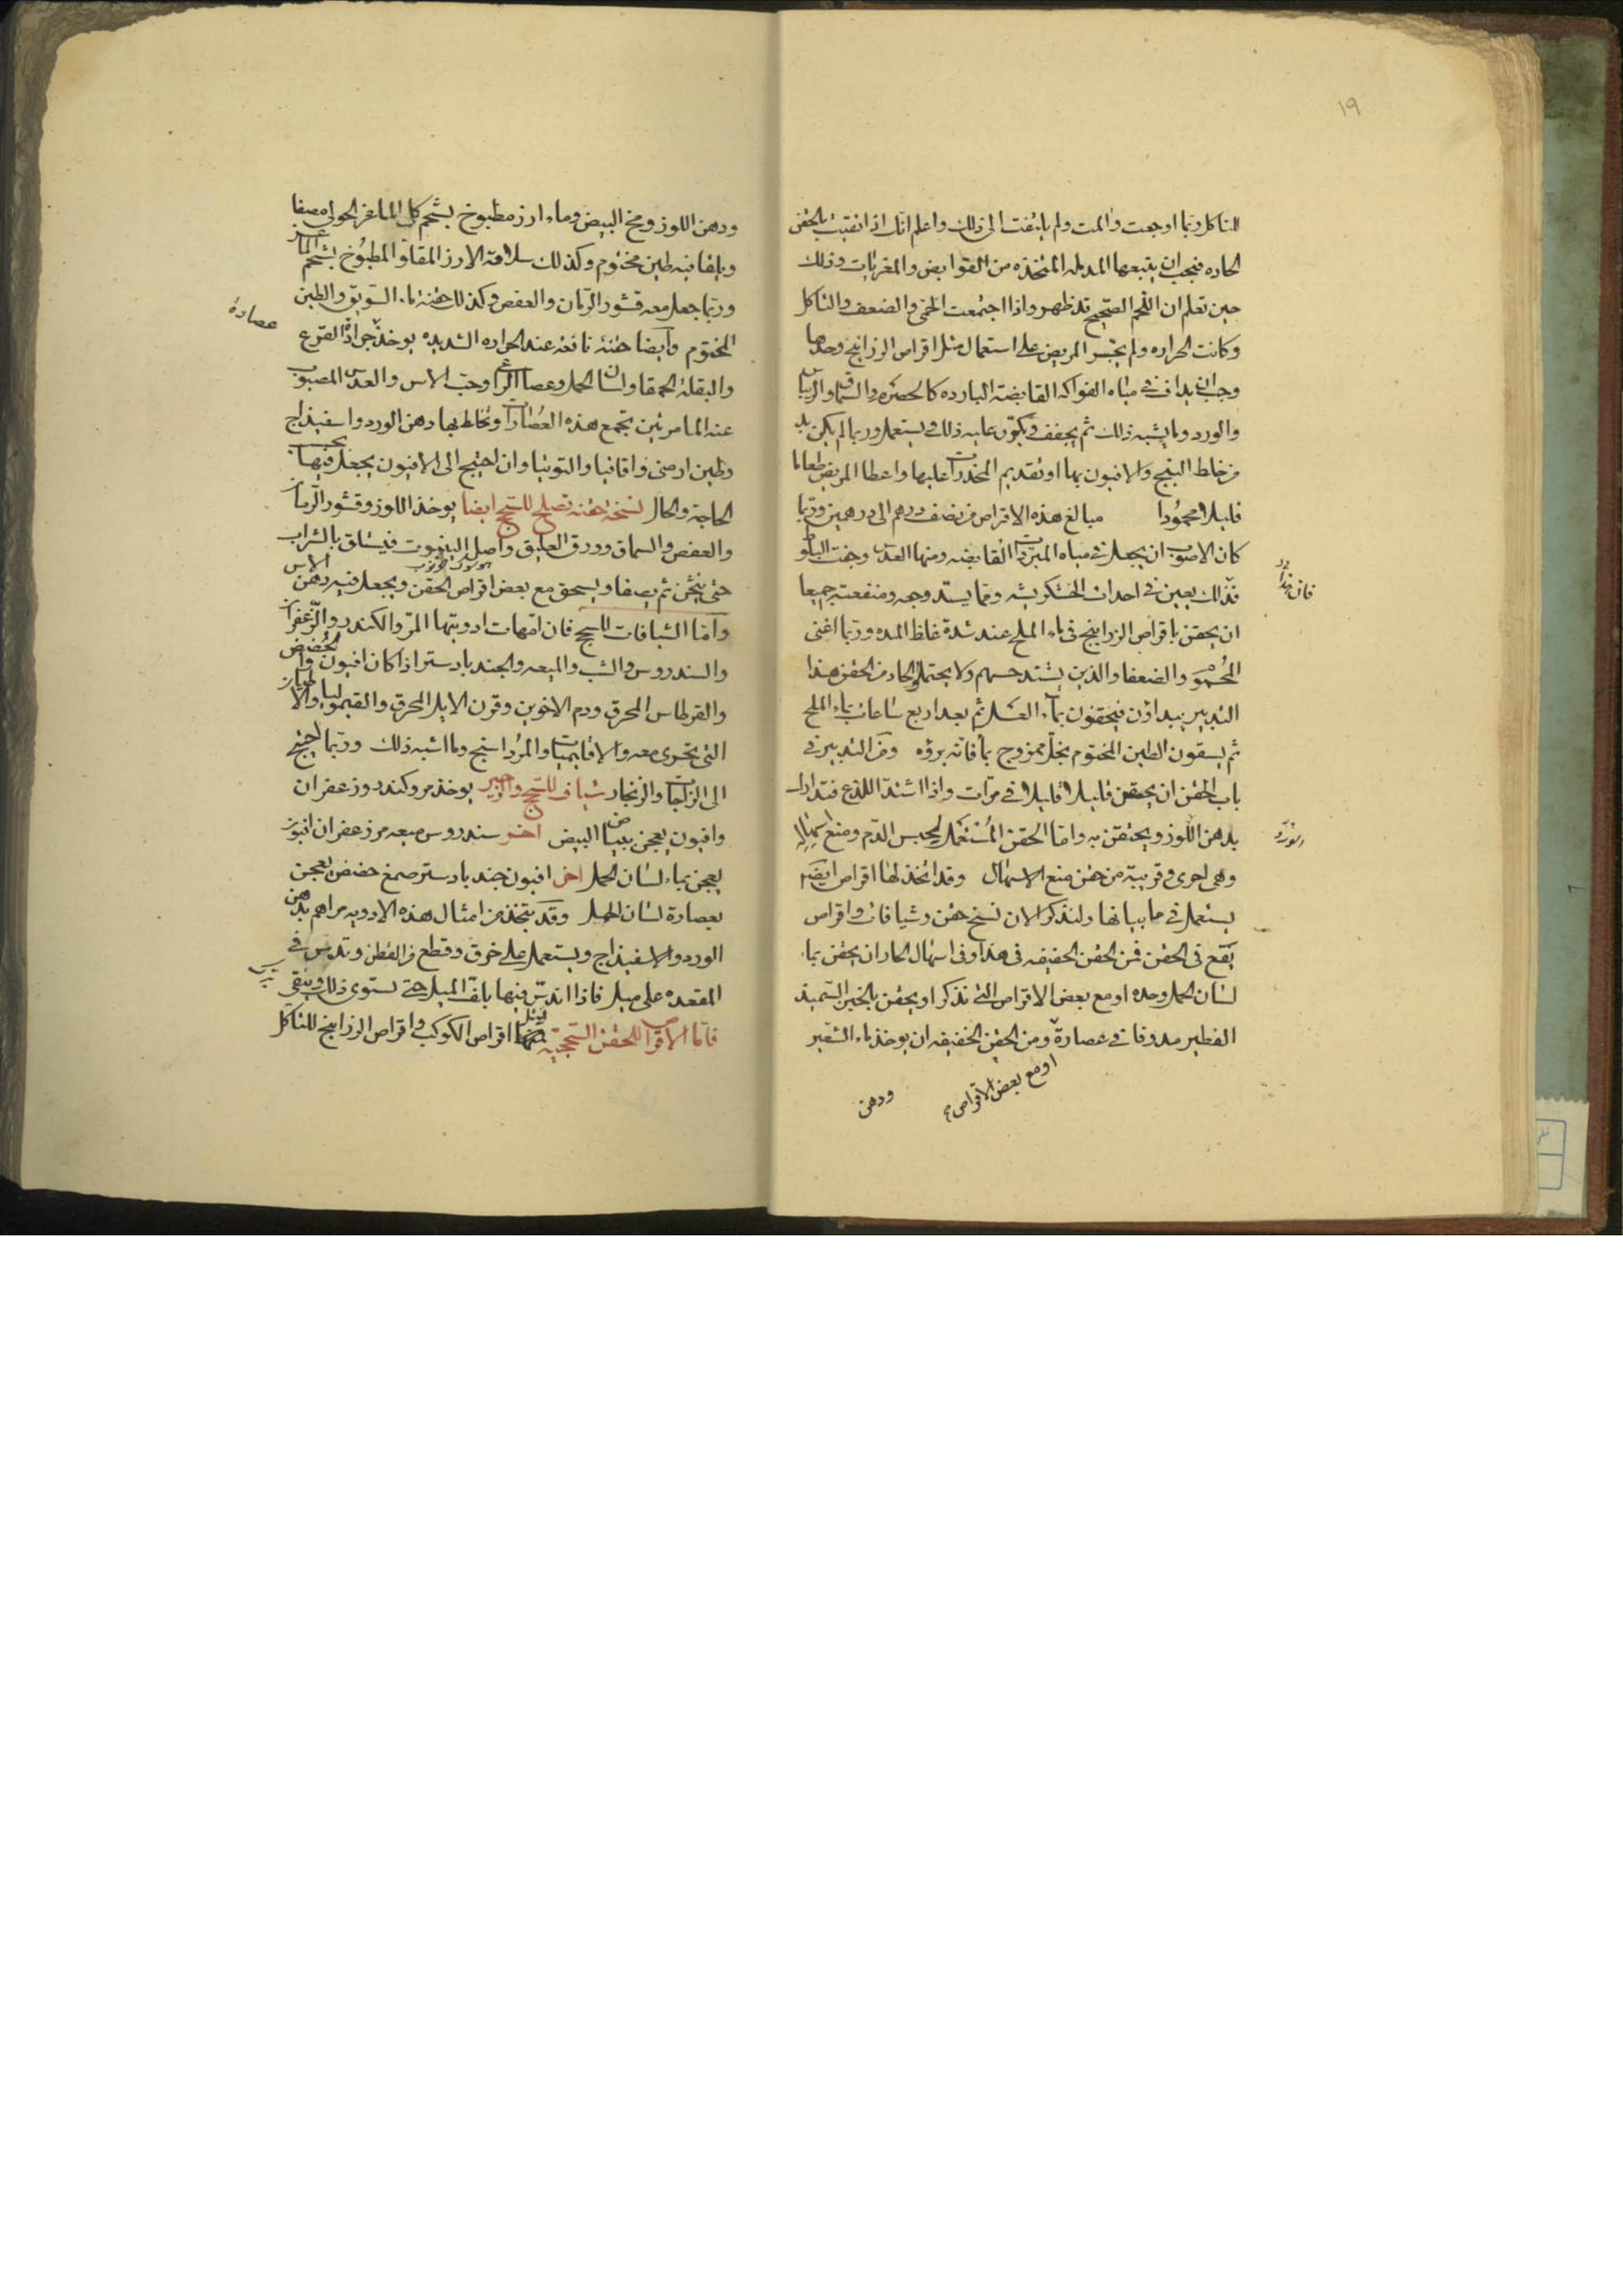 ١٩
التاكل ربما اوجعت والمت ولم يلتفت الى ذلك واعلم انك اذا انقيت بالحقن
الحاده فيجب ان يتبعها المدمله المتخذه من القوابض والمغريات وذلك
حين تعلم ان اللحم الصحيح قد ظهر واذا اجتمعت الحمى والضعف والتاكل
وكانت الحراره ولم يجسر المريض على استعمال مثل اقراص الزرانيخ وحدها
وجب ان يداف في مياه الفواكه القابضه البارده كالحصرم والسماق والريباس
والورد وما يشبه ذلك ثم يجفف ويكرر عليه ذلك ويستعمل وربما لم يكن بد
من خلط البنج والافيون بها او تقديم المخدرات عليها واعطا المريض طعاما
قليلا محمودا مبالغ هذه الاقراص من نصف درهم الى درهمين وربما
كان الاصوب ان يجعل في مياه المبردات القابضه ومنها العدس وجفت البلوط
فان هذا
فذلك يعين في احداث الخشكريشه ومما يشتد وجعه ومنفعته جميعا
ان يحقن باقراص الزرانيخ في ماء الملح عند شدة غلظ المده وربما اغنى
المحمو والضعفا والذين يشتد حسهم ولا يحتملو الحاد من الحقن هذا
التدبير يبداون فيحقنون بماء العسل ثم بعد اربع ساعات بماء الملح
ثم يسقون الطين المختوم بخل ممزوج بما فانه برؤه ومن التدبير في
باب الحقن ان يحقن قليلا قليلا في مرات واذا اشتد اللذع فتدارك
بدهن اللوز ويحتقن به واما الحقن المستعمل لحبس الدم ومنع سيلانه
الورد
وهي اخرى قريبة من حقن منع الاسهال وقد اتخذ لها اقراص ايضا
يستعمل في ما بيانها ولنذكر الان نسخ حقن وشيافات واقراص
يقع في الحقن فمن الحقن الخفيفه في هذا وفي اسهال الحار ان يحقن بماء
لسان الحمل وحده او مع بعض الاقراص التي نذكر او يحقن بالخبز السميد
الفطير مدوفا في عصارة ومن الحقن الخفيفه ان يوخذ ماء الشعير
او مع بعض الاقراص
ودهن
ودهن اللوز ومخ البيض وماء ارز مطبوخ بشحم كلى الماعز الحولي مصفا
ويلقا فيه طين مختوم وكذلك سلافة الارز المقلو المطبوخ بشحم الماعز
وربما جعل معه قشور الرمان والعفص وكذلك حقنة ماء السويق والطين
عصارة
المختوم وايضا حقنة نافعه عند الحراره الشديده يوخذ جرادة القرع
والبقلة الحمقا ولسان الحمل وعصا الراعي وحب الاس والعدس المصبوب
عنه الماء مرتين تجمع هذه العصارات وتخلط بها دهن الورد واسفيذاج
وطين ارمني واقاقيا والتوتيا وان احتيج الى الافيون يجعل فيها بحسب
الحاجة والحال نسخة حقنه تصلح للسحج ايضا يوخذ اللوز وقشور الرمان
والعفص والسماق وورق العليق واصل الينبوت فيسلق بالشراب
حتى يثخن ثم يصفا ويسحق مع بعض اقراص الحقن ويجعل فيه دهن الاس
واما الشيافات للسحج فان امهات ادويتها المر والكندر والزعفران
والسندروس والشب والميعه والجندبادستر اذا كان افيون والحضض
والقرطاس المحرق ودم الاخوين وقرن الايل المحرق والقيموليا والاطيان
التي تجرى معه والاقليميات والمرداسنج وما اشبه ذلك وربما احتيج
الى الزاجات والزنجار شياف للسحج والزحير يوخذ مر وكندر وزعفران
وافيون يعجن ببياض البيض اخر سندروس ميعه مر زعفران افيون
يعجن بماء لسان الحمل اخر افيون جندبادستر صمغ حضض يعجن
بعصارة لسان الحمل وقد يتخذ من امثال هذه الادويه مراهم بدهن
الورد والاسفيذاج ويستعمل على خرق وقطع من القطن وتدس في
المقعده على ميل فاذا اندس فيها يلف الميل حتى تستوى ذلك ويبقى
فاما الاقراص للحقن السحجيه مثل اقراص الكوكب واقراص الزرانيخ للتاكل